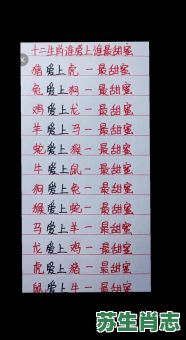 十二生肖谁爱上谁最甜蜜
猪爱上虎一最甜蜜
兔爱上狗一最甜蜜
鸡爱上龙一最甜蜜
羊爱上马一最甜蜜
蛇爱上猴一最甜蜜
牛爱上鼠一最甜蜜
狗爱上兔一最甜蜜
猴爱上蛇一最甜蜜
马爱上羊一最甜蜜
龙爱上鸡一最甜蜜
虎爱上猪一最甜蜜
鼠爱上牛一最甜蜜
苏生肖志